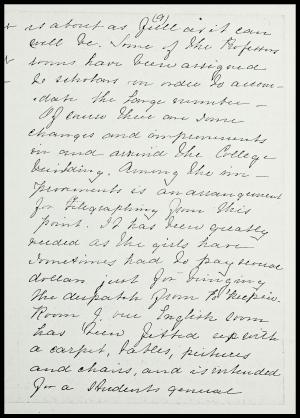 (9)
is about as full as it can
well be. Some of the Professors
rooms have been assigned
to scholars in order to accom-
-date the large number -
Of course there are some
changes and improvements
in and around the College
building. Among the im-
provements is an arrangement
for telegraphing from this
point. It has been greatly
needed as the girls have
sometimes had to pay several
dollars just for bringing
the despatch from Po'keepsie.
Room J. our English room
has been fitted up with
a carpet, tables, pictures
and chairs, and is intended
for a students general